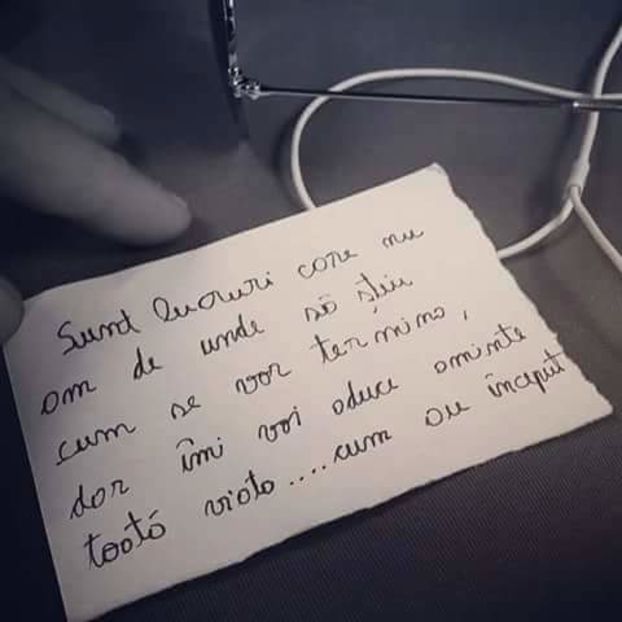 Sunt lucruri care nu
am de unde să știu
cum se vor termina,
dar îmi voi aduce aminte
toată viața....cum au început